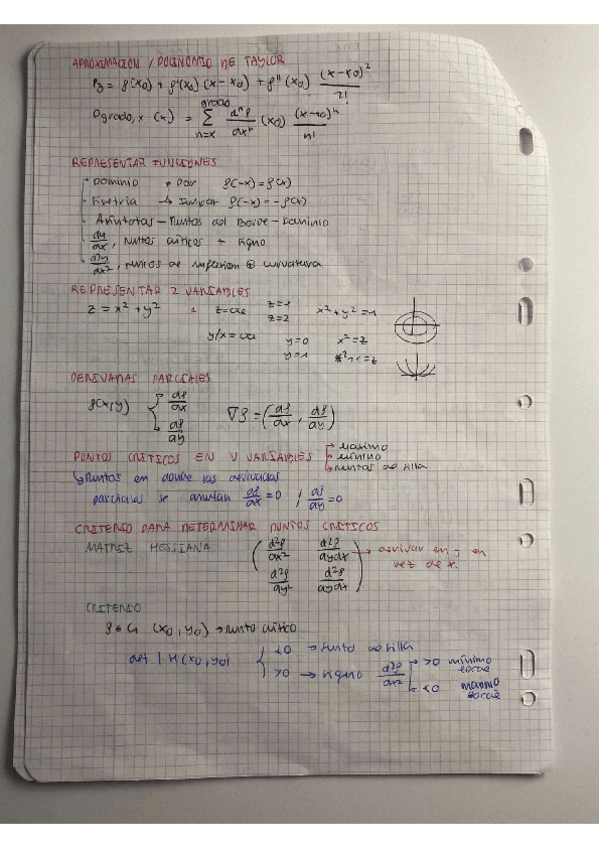 APROXIMACIÓN / POLINOMIO DE TAYLOR
P₂ = f(x₀) + f'(x₀)(x-x₀) + f''(x₀) (x-x₀)²/2!
Pgrado,x (x) = grado Σ n=x dⁿf/dxⁿ (x₀) (x-x₀)ⁿ/n!
REPRESENTAR FUNCIONES
- Dominio → par f(-x) = f(x)
- Simetría → Impar f(-x) = -f(x)
- Asíntotas - Puntos del Borde - Dominio
- dy/dx, puntos críticos + signo
- d²y/dx², puntos de inflexión curvatura
REPRESENTAR 2 VARIABLES
z = x² + y² z=cte z=1 z=2 x²+y²=1
y/x=cte y=0 x²=z
y=1 x²+1=z
DERIVADAS PARCIALES
f(x,y) { df/dx df/dy ∇f = (df/dx, df/dy)
PUNTOS CRÍTICOS EN V VARIABLES → máximo → mínimo → puntos de silla
↳ Puntos en donde las derivadas
parciales se anulan df/dx = 0 , df/dy = 0
CRITERIO PARA DETERMINAR PUNTOS CRÍTICOS
MATRIZ HESSIANA ( d²f/dx² d²f/dydx → derivar en y en vez de x.
d²f/dy² d²f/dydx )
CRITERIO
(x₀, y₀) → punto crítico
det | H(x₀, y₀) { <0 → punto de silla
>0 → signo d²f/dx² → >0 mínimo local
<0 máximo local